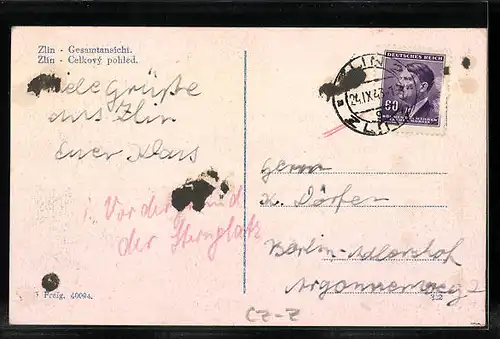 Zlin - Gesamtansicht.
Zlín - Celkový pohled.
Viele Grüße
aus Zlin
Euer Klaus
i. Vordergrund
der Sternplatz
Freig. 40094.
DEUTSCHES REICH
60
24.IX.43
ZLÍN
Herrn
K. Dörfer
Berlin-Adlershof
Argonnenweg
322
CZ-Z